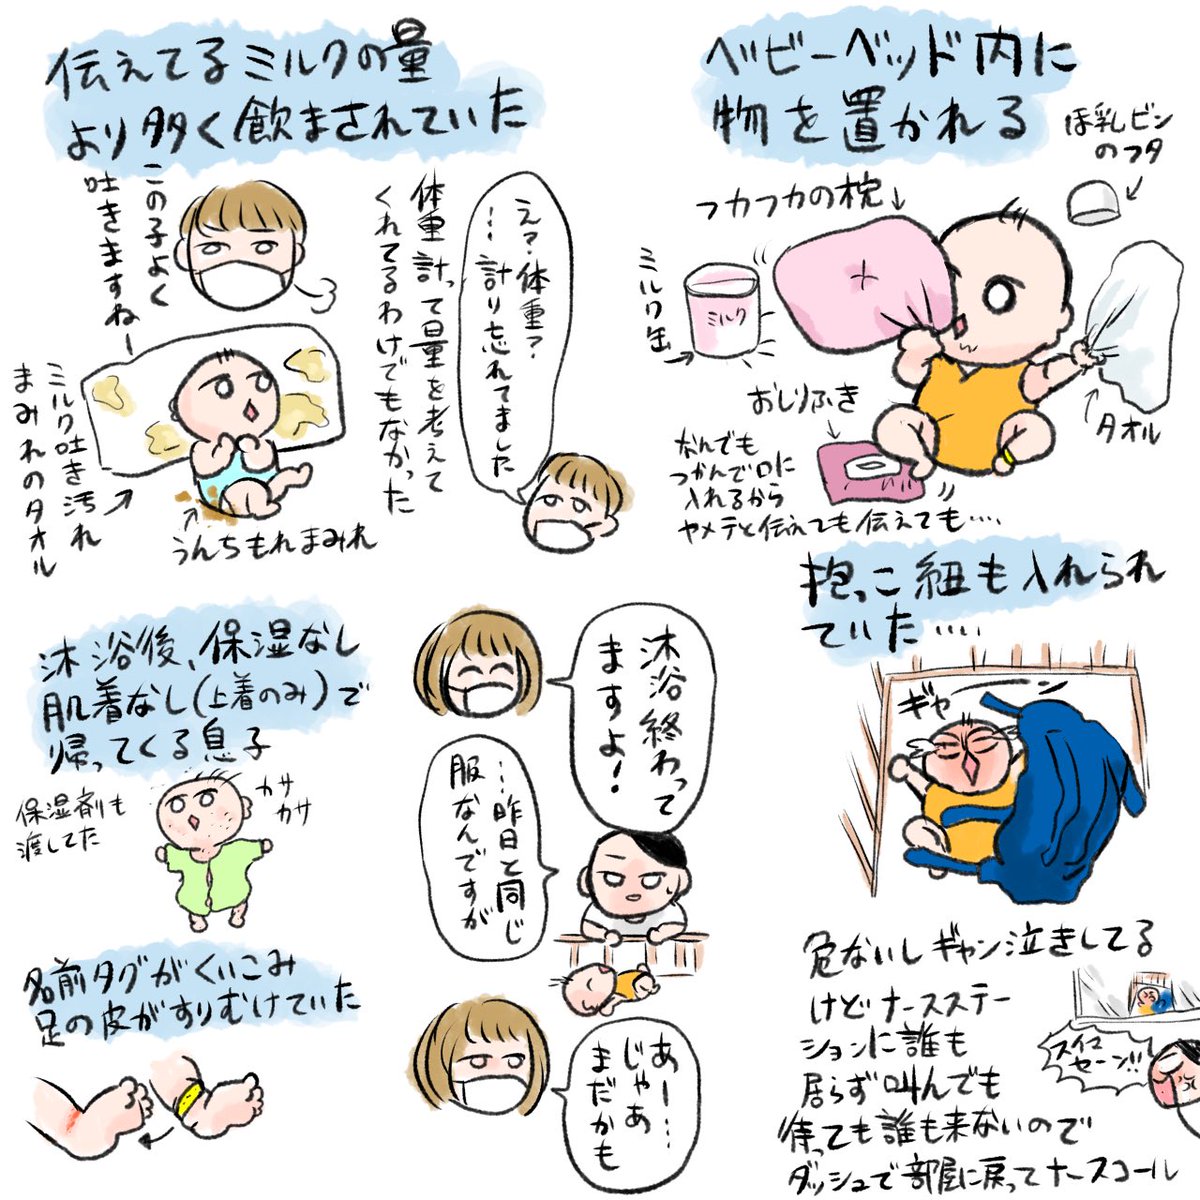 伝えてるミルクの量
より多く飲まされていた
この子よく
吐きますねー
ミルク吐き汚れ
まみれのタオル
うんちもれまみれ
え？体重？
…計り忘れてました
体重計って量を考えて
くれてるわけでもなかった
ベビーベッド内に
物を置かれる
ほ乳ビン
のフタ
フカフカの枕
ミルク缶
ミルク
おしりふき
タオル
なんでも
つかんで口に
入れるから
ヤメテと伝えても伝えても‥‥
沐浴後、保湿なし
肌着なし(上着のみ)で
帰ってくる息子
保湿剤も
渡してた
カサ
カサ
名前タグがくいこみ
足の皮がすりむけていた
沐浴終わって
ますよ！
…昨日と同じ
服なんですが
あー…
じゃあ
まだかも
抱っこ紐も入れられ
ていた‥‥
ギャーン
危ないしギャン泣きしてる
けどナースステー
ションに誰も
居らず叫んでも
待っても誰も来ないので
ダッシュで部屋に戻ってナースコール
スイマ
セーン!!